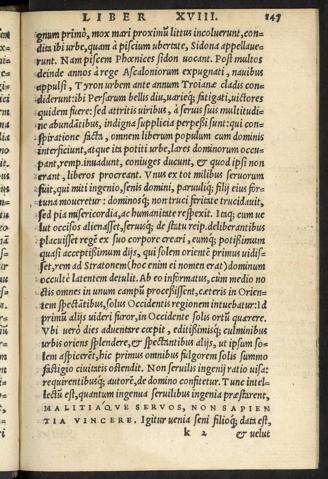 LIBER XVIII. 147
gnum primò, mox mari proximũ littus incoluerunt, con-
dita ibi urbe, quam à piscium ubertate, Sidona appellaue-
runt. Nam piscem Phœnices sidon uocant. Post multos
deinde annos à rege Ascaloniorum expugnati, nauibus
appulsi, Tyron urbem ante annum Troianæ cladis con-
diderunt: ibi Persarum bellis diu, uarieq́; fatigati, uictores
quidem fuere: sed attritis uiribus, à seruis suis multitudi-
ne abundãtibus, indigna supplicia perpeßi sunt: qui con-
spiratione facta, omnem liberum populum cum dominis
interficiunt, atque ita potiti urbe, lares dominorum occu-
pant, remp. inuadunt, coniuges ducunt, & quod ipsi non
erant, liberos procreant. Vnus ex tot milibus seruorum
fuit, qui miti ingenio, senis domini, paruuliq́; filij eius for-
tuna moueretur: dominosq́; non truci feritate trucidauit,
sed pia misericordia, ac humanitate respexit. Itaq; cum ue
lut occisos alienasset, seruisq́; de statu reip. deliberantibus
placuisset regẽ ex suo corpore creari, eumq́; potißimum
quasi acceptißimum dijs, qui solem orientẽ primus uidis-
set, rem ad Stratonem (hoc enim ei nomen erat) dominum
occultè latentem detulit. Ab eo informatus, cùm medio no
ctis omnes in unum campũ procesßissent, cæteris in Orien-
tem spectãtibus, solus Occidentis regionem intuebatur: Id
primũ alijs uideri furor, in Occidente solis ortũ quærere.
Vbi uerò dies aduentare cœpit, editißimisq́; culminibus
urbis oriens splendere, & spectantibus alijs, ut ipsum so-
lem aspicerẽt, hic primus omnibus fulgorem solis summo
fastigio ciuitatis ostendit. Non seruilis ingenij ratio uisa:
requirentibusq́; autorẽ, de domino confitetur. Tunc intel-
lectũ est, quantum ingenua seruilibus ingenia præstarent,
MALITIAQVE SERVOS, NON SAPIEN
TIA VINCERE. Igitur uenia seni filioq́; data est,
k 2 & uelut